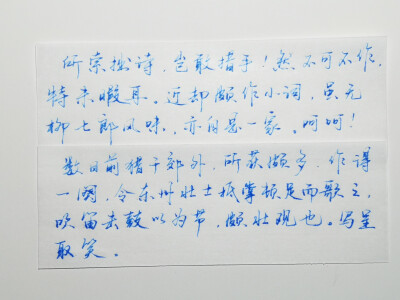 所索拙诗，岂敢措手！然不可不作，
特未暇耳。近却颇作小词，虽无
柳七郎风味，亦自是一家。呵呵！
数日前猎于郊外，所获颇多，作得
一阕，令东州壮士抵掌顿足而歌之，
吹笛击鼓以为节，颇壮观也。写呈
取笑。